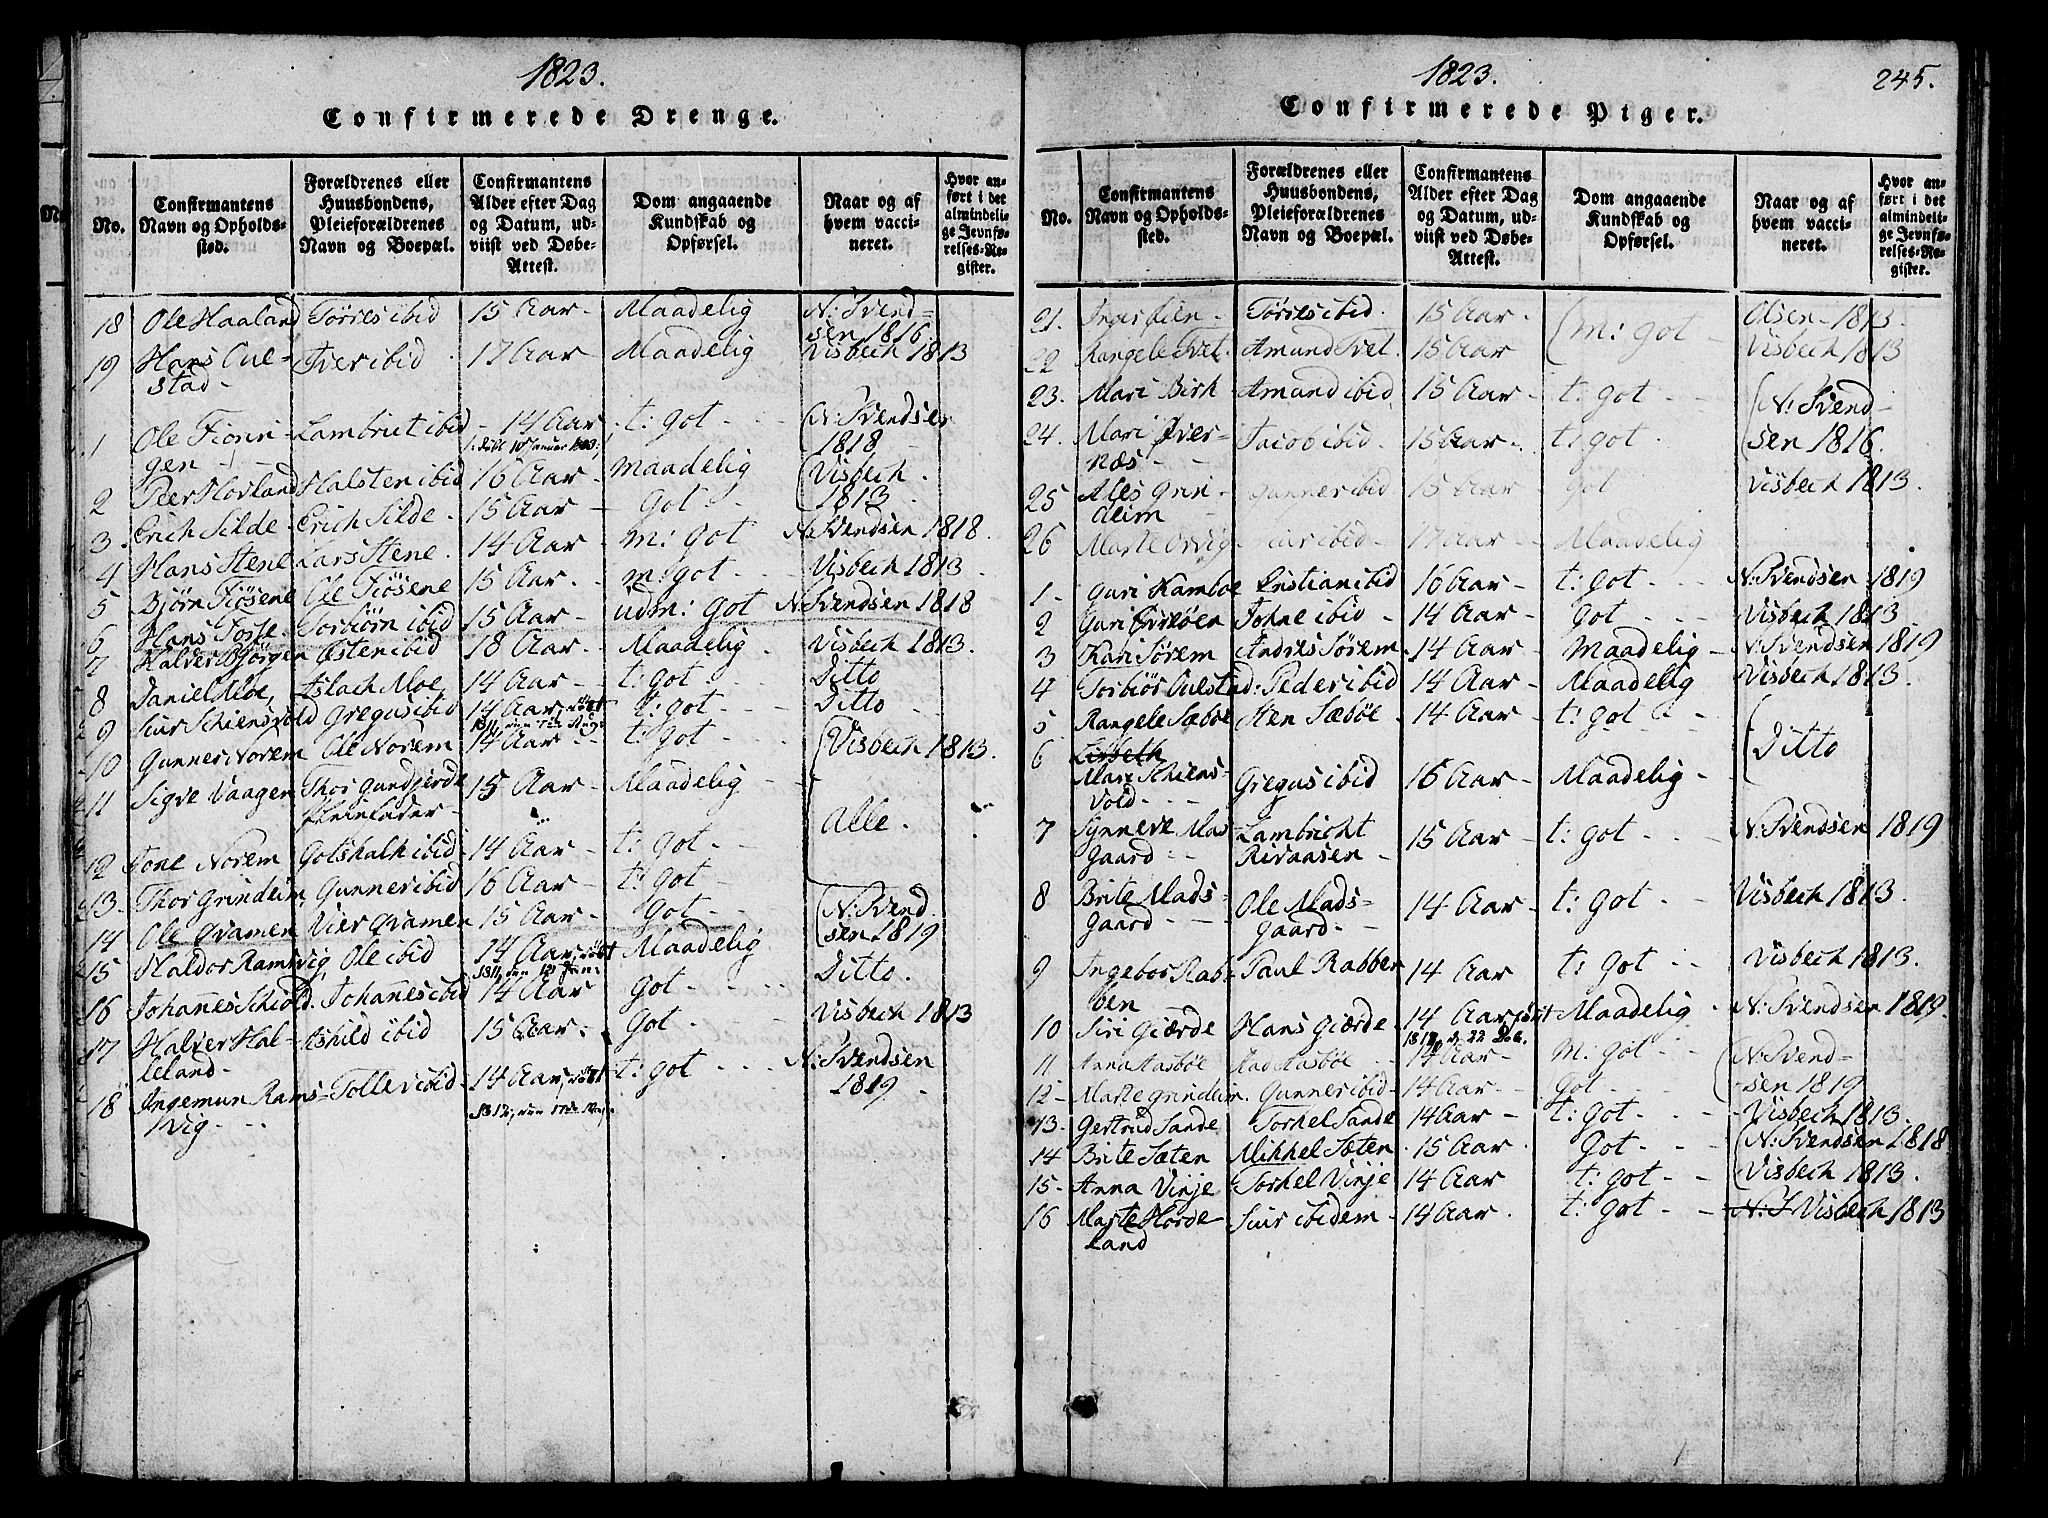 1823.
Confirmerede Drenge.
No.
Confirmantens Navn og Opholdssted.
Forældrenes eller Huusbondens, Pleieforældrenes Navn og Boepæl.
Confirmantens Alder efter Dag og Datum, udviist ved Døbe-Attest.
Dom angaaende Kundskab og Opførsel.
Naar og af hvem vaccineret.
Hvor anført i det almindelige Jevnførelses-Register.
18 Ole Haaland Törres ibid 15 Aar - Maadelig N: Svend-
sen 1816
19 Hans Cul- Iver ibid 17 Aar - Maadelig Visbech 1813
stad -
1 Ole Fionn- Lambrict ibid - 14 Aar t: got - - N: Svendsen
gen 1818
2 Peer Hovland Halsten ibid 16 Aar - Maadelig Visbech
1813
3. Erich Silde - Erich Silde - 15 Aar - got - N: Svendsen 1818.
4 Hans Stene Lars Stene. 14 Aar - m: got - Visbech 1813
5 Bjørn Fiösene Ole Fiösene 15 Aar - m: got - - N: Svendsen 1818
6 Hans Fosse. Torbiörn ibid 15 Aar - udm: got
7 Halver Bjørgen Østen ibid 18 Aar - Maadelig. Visbech 1813.
8 Daniel Moe, Aslach Moe 14 Aar - t: got - - Ditto
9 Siur Schiensvold Gregus ibid 14 Aar, t: got - - Ditto
10 Gunner Norem Ole Norem 14 Aar - - t: got - - Visbech 1813.
11 Sigve Vaagen Thor Gundjerde 15 Aar - Maadelig - Alle.
12 Tone Norem Gotshalk ibid - 14 Aar - t: got -
13. Thor Grindeim, Gunner ibid 16 Aar - t: got -
14 Ole Qvamen Vier Qvamen 15 Aar - got - - N: Svend
sen 1819
15 Haldor Ramsvig, Ole ibid 14 Aar, Maadelig Ditto.
16 Johannes Schiold. Johannes ibid 14 Aar got - - - Visbech 1813
17 Halver Hal- Ashild ibid 15 Aar - got - -
leland -
18 Ingemun Rams- Tollev ibid - 14 Aar, t: got - - - N: Svendsen
vig - - - 1819
1823.
245.
Confirmerede Piger.
No.
Confirmantens Navn og Opholdssted.
Forældrenes eller Huusbondens, Pleieforældrenes Navn og Boepæl.
Confirmantens Alder efter Dag og Datum, udviist ved Døbe-Attest.
Dom angaaende Kundskab og Opførsel.
Naar og af hvem vaccineret.
Hvor anført i det almindelige Jevnførelses-Register.
21. Törres ibid. 15 Aar - m: got - Olsen - 1813.
22 Rangele Tvet. Amund Tvet. 15 Aar Visbech 1813
23. Mari Birk Amund ibid 15 Aar - t: got - - N: Svend-
24. Mari Øver- Jacob ibid - 15 Aar - t: got - sen 1816.
næs -
25 Ales Grin- Gunner ibid 15 Aar - got Visbech 1813.
deim -
26 17 Aar - Maadelig
1- Guri Kamboe Cristian ibid 16 Aar - t: got - - - N: Svendsen 1819
2 Johne ibid - 14 Aar - got - - - Visbech 1813.
3 Kari Sörem Andres Sörem - 14 Aar - Maadelig - N: Svendsen 1819
4 Torbiör Culstad: Peder ibid 14 Aar - Maadelig Visbech 1813.
5 Rangele Sæboe Sten Sæböe - 14 Aar - t: got - - Ditto
6 Lisbeth
Mari Schiens- Gregus ibid 16 Aar - Maadelig -
vold - - -
7 Synneve Mas- Lambricht 15 Aar - t: got - - N: Svendsen 1819
gaard - - Risaasen -
8 Brite Mads- Ole Mads- 14 Aar - t: got - - Visbech 1813.
gaard - - gaard. -
9 Ingebor Rab- Paul Rabben 14 Aar t: got - - Visbech 1813.
ben -
10 Siri Giærde Hans Giærde - 14 Aar, Maadelig - N: Svendsen 1819.
11 Anna Aasböe Mad Aasböe - 14 Aar - m: got - N: Svend-
12 - Marte Grindeim. Gunner ibid - 14 Aar - - got - - sen 1819
13. Gertrud Sande Torkel Sande 14 Aar - t: got - - - Visbech 1813.
14 Brite Sæten Mikkel Sæten - 15 Aar - got - - N: Svendsen 1818.
15 - Anna Vinje Torkel Vinje 14 Aar t: got - - Visbech 1813.
16 Marte Horde- Siur ibidem - 14 Aar. t: got - - N: S Visbech 1813
land